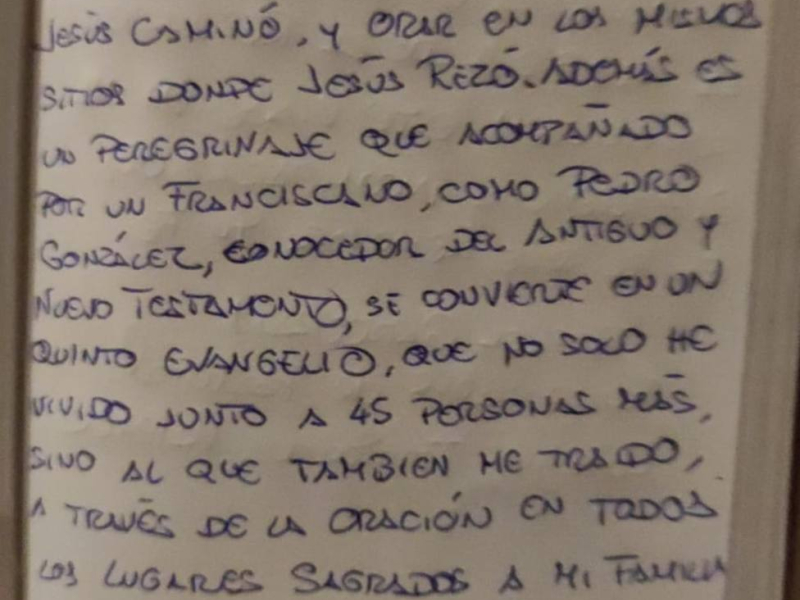 JESÚS CAMINÓ, Y ORAR EN LOS MISMOS
SITIOS DONDE JESÚS REZÓ. ADEMÁS ES
UN PEREGRINAJE QUE ACOMPAÑADO
POR UN FRANCISCANO, COMO PEDRO
GONZÁLEZ, CONOCEDOR DEL ANTIGUO Y
NUEVO TESTAMENTO, SE CONVIERTE EN UN
QUINTO EVANGELIO, QUE NO SOLO HE
VIVIDO JUNTO A 45 PERSONAS MÁS,
SINO AL QUE TAMBIEN HE TRAIDO,
A TRAVÉS DE LA ORACIÓN EN TODOS
LOS LUGARES SAGRADOS A MI FAMILIA